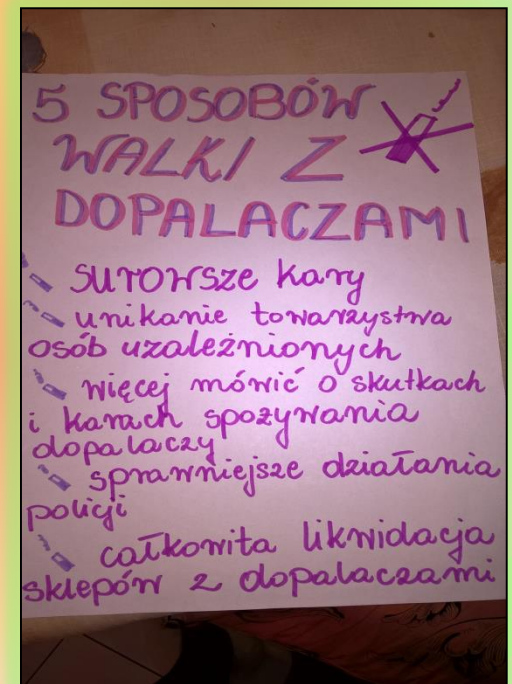 5 SPOSOBÓW
WALKI Z
DOPALACZAMI
surowsze kary
unikanie towarzystwa
osób uzależnionych
więcej mówić o skutkach
i karach spożywania
dopalaczy
sprawniejsze działania
policji
całkowita likwidacja
sklepów z dopalaczami